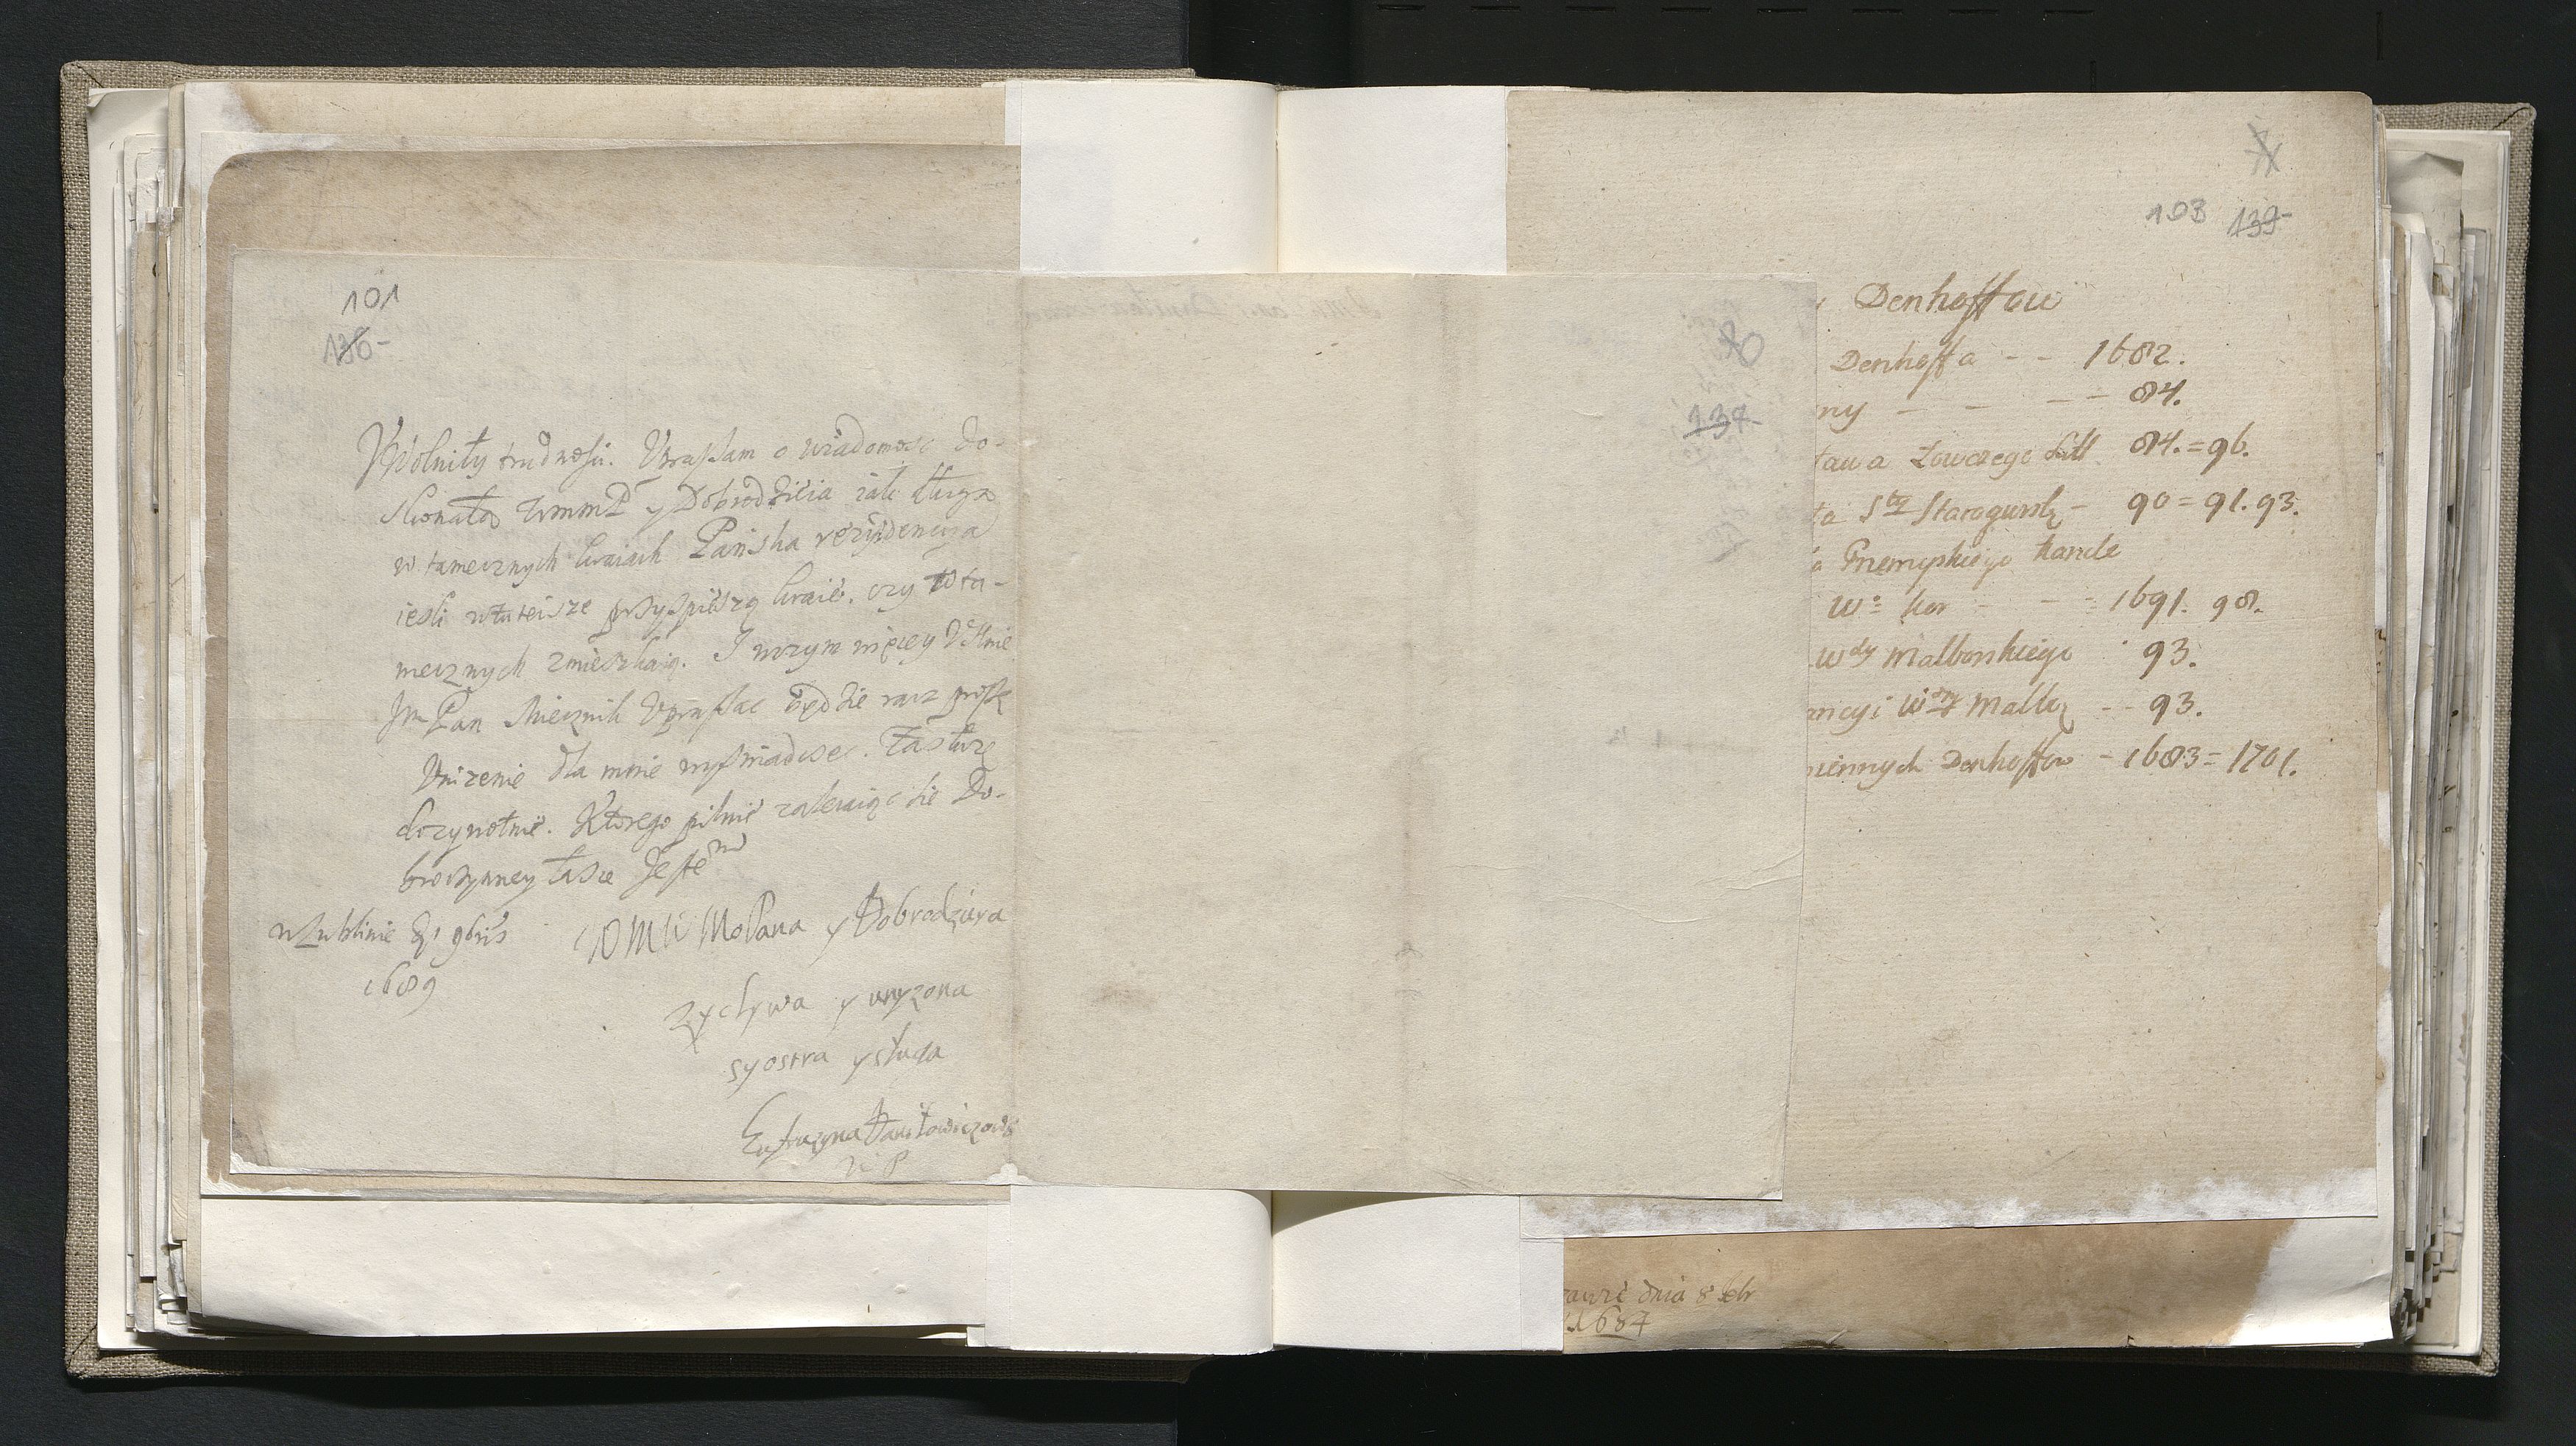 101
136-
Wolniły trudnosci. Upraszam o wiadomosc do-
skonałą WmmP y Dobrodzieia iak długa
w tamecznych kraiach Pańska rezydencya
iesli wtuteisze przyspieszą kraie. czy w ta-
mecznych zmieszkaią. I wczym więcey Ustnie
Jm Pan Miecznik Upraszac będzie racz proszę
Unizenie dla mnie wyswiadczec. Łaskę
dozywotnie. Ktorego pilnie zalecaiąc sie Do-
broczynney łasce Jestem
w Lublinie 21 9bris
1689
WMM MoPana y Dobrodzieia
zyczlywa y unyzona
syostra y sługa
Eufrazyna Daniłowiczowa
70
137-
103 139-
Denhoffow
Denhoffa - - 1682.
ny - - - - 84.
ława Łowczego Litt 84.=96.
ta Stty Starogurskz - 90=91.93.
a Przemyskiego Kancle
Wo Kor - - - 1691. 98.
Wdy Malborskiego 93.
Wdzy Malbz - - 93.
iennych Denhoffow - 1683=1701.
awie dnia 8 febr
1687